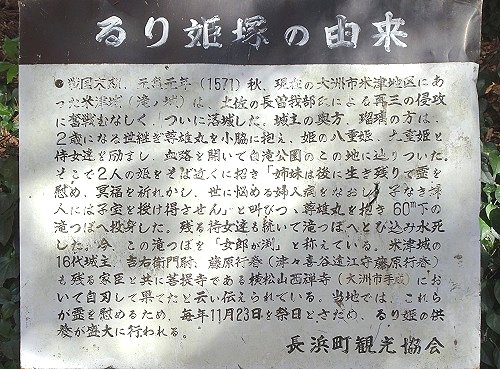 るり姫塚の由来
●戦国末期、元亀元年(1571)秋、現在の大洲市米津地区にあ
った米津城(滝ノ城)は、土佐の長曽我部氏による再三の侵攻
に奮戦むなしく、ついに落城した。城主の奥方、瑠璃の方は、
2歳になる世継ぎ尊雄丸を小脇に抱え、姫の八重姫、九重姫と
侍女達を励まし、血路を開いて白滝公園のこの地に辿りついた。
そこで2人の姫をそば近くに招き「姉妹は後に生き残りて霊を
慰め、冥福を祈れかし、世に悩める婦人病をなおし、子なき婦
人には子宝を授け得させん。」と叫びつゝ尊雄丸を抱き60m下の
滝つぼへ投身した。残る侍女達も続いて滝つぼへとび込み水死
した。今、この滝つぼを「女郎が渕」と称えている。米津城の
16代城主、吉右衛門尉、藤原行春(津々喜谷遠江守藤原行春)
も残る家臣と共に菩提寺である横松山西禅寺(大洲市手成)にお
いて自刃して果てたと云い伝えられている。当地では、これら
が霊を慰めるため、毎年11月23日を祭日とさだめ、るり姫の供
養が盛大に行われる。
長浜町観光協会